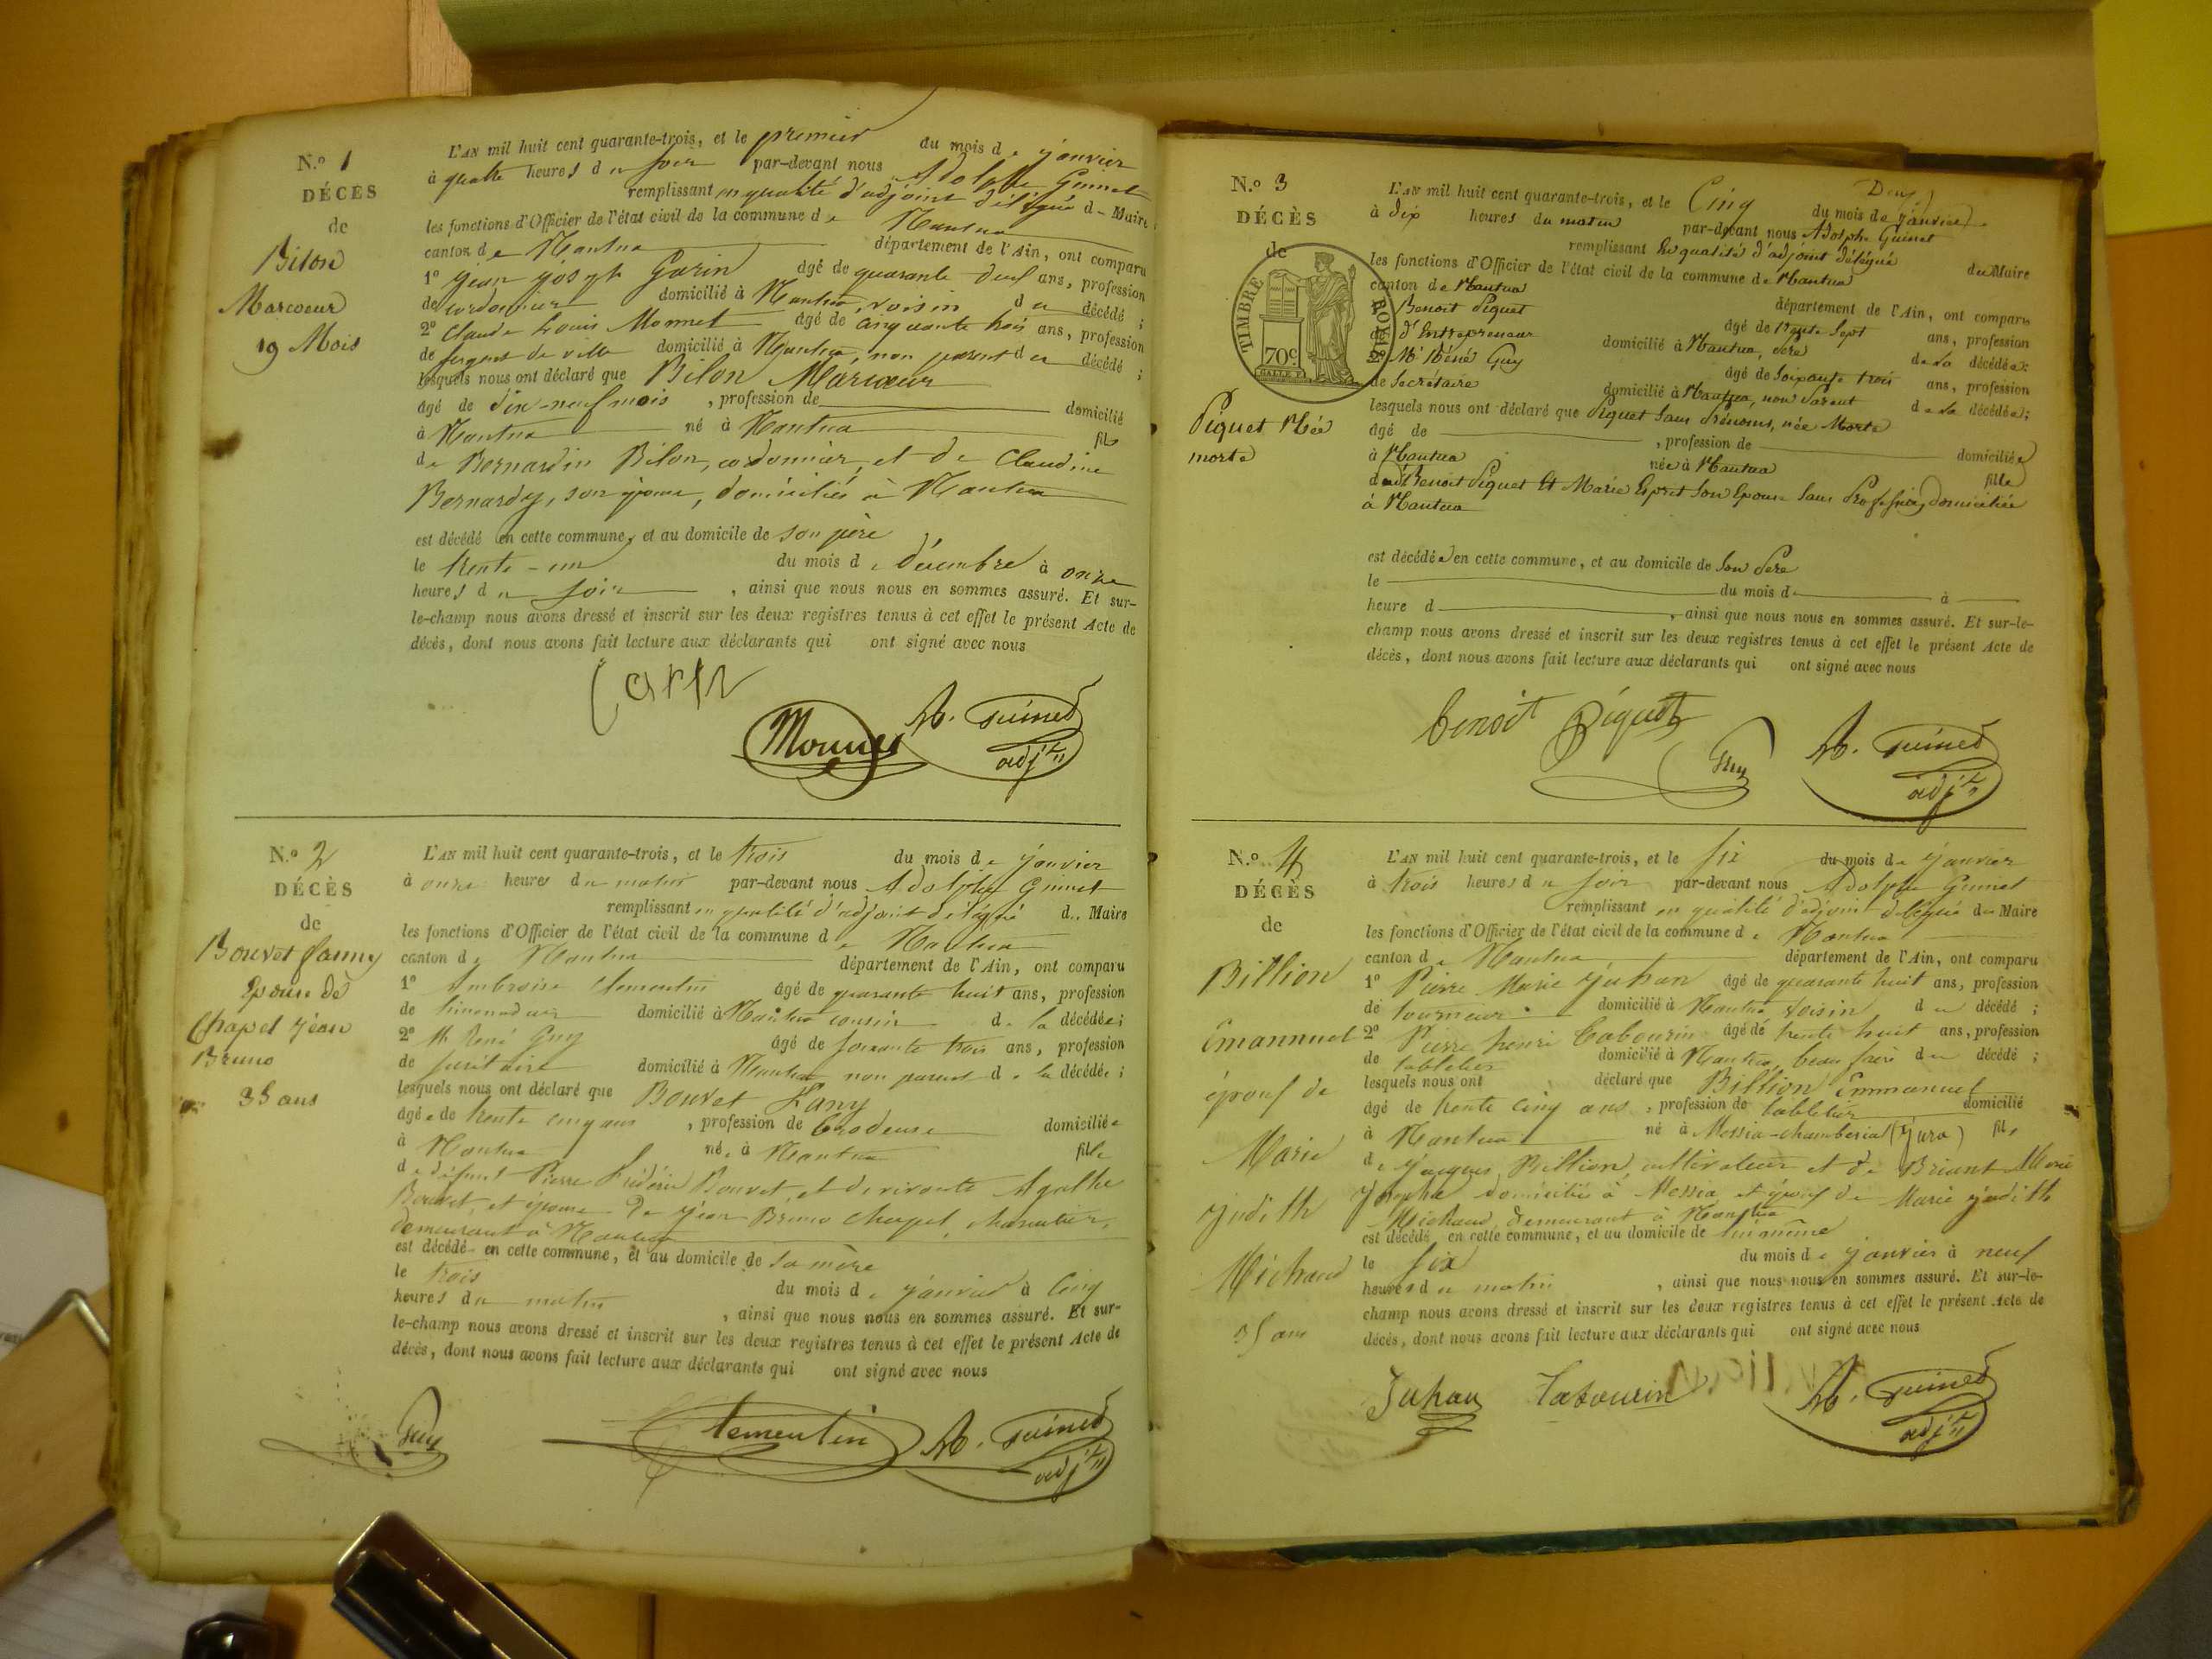 N.º 1
DÉCÈS
de
Bilon
Marcoeur
19 Mois
L'AN mil huit cent quarante-trois, et le premier du mois de janvier
à quatre heures du soir par-devant nous Adolphe Guinet
remplissant en qualité d'adjoint délégué du Maire
les fonctions d'Officier de l'état civil de la commune de Nantua
canton de Nantua département de l'Ain, ont comparu
1º Jean Joseph Garin âgé de quarante deux ans, profession
de cordonnier domicilié à Nantua, voisin du décédé ;
2º Claude Louis Monnet âgé de cinquante trois ans, profession
de sergent de ville domicilié à Nantua, non parent du décédé ;
lesquels nous ont déclaré que Bilon Marcoeur
âgé de dix-neuf mois , profession de domicilié
à Nantua né à Nantua fils
de Bernardin Bilon, cordonnier, et de Claudine
Bernardy, son épouse, domiciliés à Nantua
est décédé en cette commune, et au domicile de son père
le trente-un du mois de décembre à onze
heures du soir , ainsi que nous nous en sommes assuré. Et sur-
le-champ nous avons dressé et inscrit sur les deux registres tenus à cet effet le présent Acte de
décès, dont nous avons fait lecture aux déclarants qui ont signé avec nous
Garin
Monnet A. Guinet
adjt
N.º 2
DÉCÈS
de
Bouvet fanny
Epouse de
Chapel Jean
Bruno
35 ans
L'AN mil huit cent quarante-trois, et le trois du mois de janvier
à onze heures du matin par-devant nous Adolphe Guinet
remplissant en qualité d'adjoint délégué du Maire
les fonctions d'Officier de l'état civil de la commune de Nantua
canton de Nantua département de l'Ain, ont comparu
1º Ambroise Clementin âgé de quarante huit ans, profession
de limonadier domicilié à Nantua cousin de la décédée ;
2º M. René Guy âgé de soixante trois ans, profession
de secrétaire domicilié à Nantua non parent de la décédée ;
lesquels nous ont déclaré que Bouvet Fany
âgée de trente cinq ans , profession de brodeuse domiciliée
à Nantua née à Nantua fille
de défunt Pierre Frédéric Bouvet, et de vivante Agathe
Bouvet, et épouse de Jean Bruno Chapel, charcutier,
demeurant à Nantua
est décédée en cette commune, et au domicile de sa mère
le trois du mois de janvier à cinq
heures du matin , ainsi que nous nous en sommes assuré. Et sur-
le-champ nous avons dressé et inscrit sur les deux registres tenus à cet effet le présent Acte de
décès, dont nous avons fait lecture aux déclarants qui ont signé avec nous
Guy Clementin A. Guinet
adjt
N.º 3
DÉCÈS
de
TIMBRE ROYAL
70c
Piquet Née
morte
L'AN mil huit cent quarante-trois, et le Cinq du mois de janvier
à dix heures du matin par-devant nous Adolphe Guinet
remplissant En qualité d'adjoint délégué du Maire
les fonctions d'Officier de l'état civil de la commune de Nantua
canton de Nantua département de l'Ain, ont comparu
Benoit Piquet âgé de trente sept ans, profession
d'Entrepreneur domicilié à Nantua, Père de la décédée
2º Mr Réné Guy âgé de soixante trois ans, profession
de Secrétaire domicilié à Nantua, non parent de la décédée ;
lesquels nous ont déclaré que Piquet Sans Prénoms, née Morte
âgé de , profession de domiciliée
à Nantua née à Nantua fille
dudit Benoit Piquet Et Marie Esprit Son Epouse Sans Profession, domiciliés
à Nantua
est décédée en cette commune, et au domicile de Son Père
le du mois d à
heure d , ainsi que nous nous en sommes assuré. Et sur-le-
champ nous avons dressé et inscrit sur les deux registres tenus à cet effet le présent Acte de
décès, dont nous avons fait lecture aux déclarants qui ont signé avec nous
Benoit Piquet Guy A. Guinet
adjt
N.º 4
DÉCÈS
de
Billion
Emannuel
époux de
Marie
Judith
Michaud
35 ans
L'AN mil huit cent quarante-trois, et le six du mois de janvier
à trois heures du soir par-devant nous Adolphe Guinet
remplissant en qualité d'adjoint délégué du Maire
les fonctions d'Officier de l'état civil de la commune de Nantua
canton de Nantua département de l'Ain, ont comparu
1º Pierre Marie Juhan âgé de quarante huit ans, profession
de tourneur domicilié à Nantua voisin du décédé ;
2º Pierre henri Tabourin âgé de trente huit ans, profession
de tabletier domicilié à Nantua, beau frère du décédé ;
lesquels nous ont déclaré que Billion Emmanuel
âgé de trente cinq ans , profession de tabletier domicilié
à Nantua né à Messia-chambéria (Jura) fils
de Jacques Billion, cultivateur et de Briant Marie
Josephe domiciliés à Messia et époux de Marie Judith
Michaud, demeurant à Nantua
est décédé en cette commune, et au domicile de lui même
le six du mois de janvier à neuf
heures du matin , ainsi que nous nous en sommes assuré. Et sur-le-
champ nous avons dressé et inscrit sur les deux registres tenus à cet effet le présent Acte de
décès, dont nous avons fait lecture aux déclarants qui ont signé avec nous
Juhan Tabourin A. Guinet
adjt